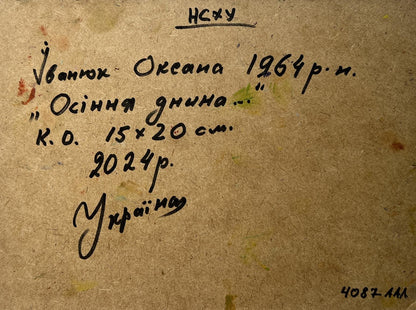 НСХУ
Іванюк Оксана 1964 р. н.
„Осіння днина..."
К. О. 15 x 20 см.
2024 р.
Україна
4087 ААА